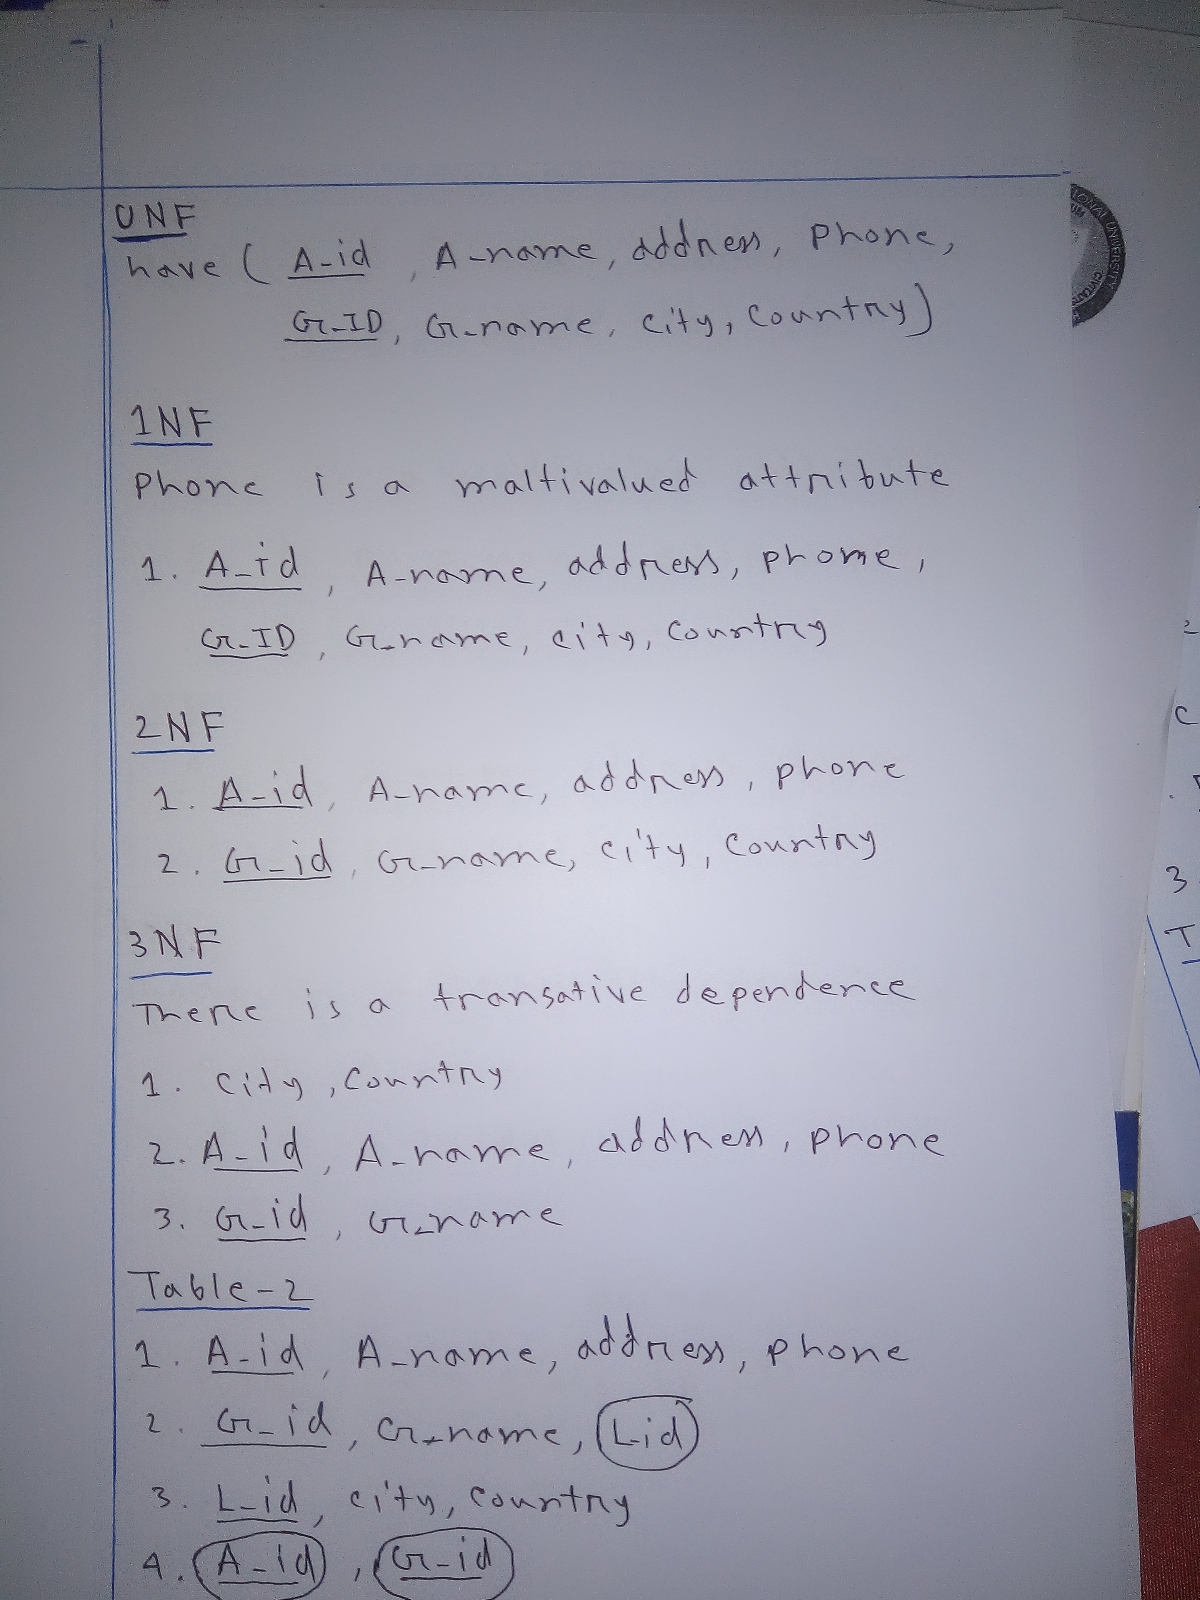 UNF
have ( A-id, A-name, address, phone,
G-ID, G-name, city, country)
1NF
Phone is a maltivalued attribute
1. A-id, A-name, address, phome,
G-ID, G-name, city, country
2NF
1. A-id, A-name, address, phone
2. G-id, G-name, city, country
3NF
There is a transative dependence
1. city, country
2. A-id, A-name, address, phone
3. G-id, G-name
Table-2
1. A-id, A-name, address, phone
2. G-id, G-name, L-id
3. L-id, city, country
4. A-id, G-id
UNIVERSITY
C
3
T